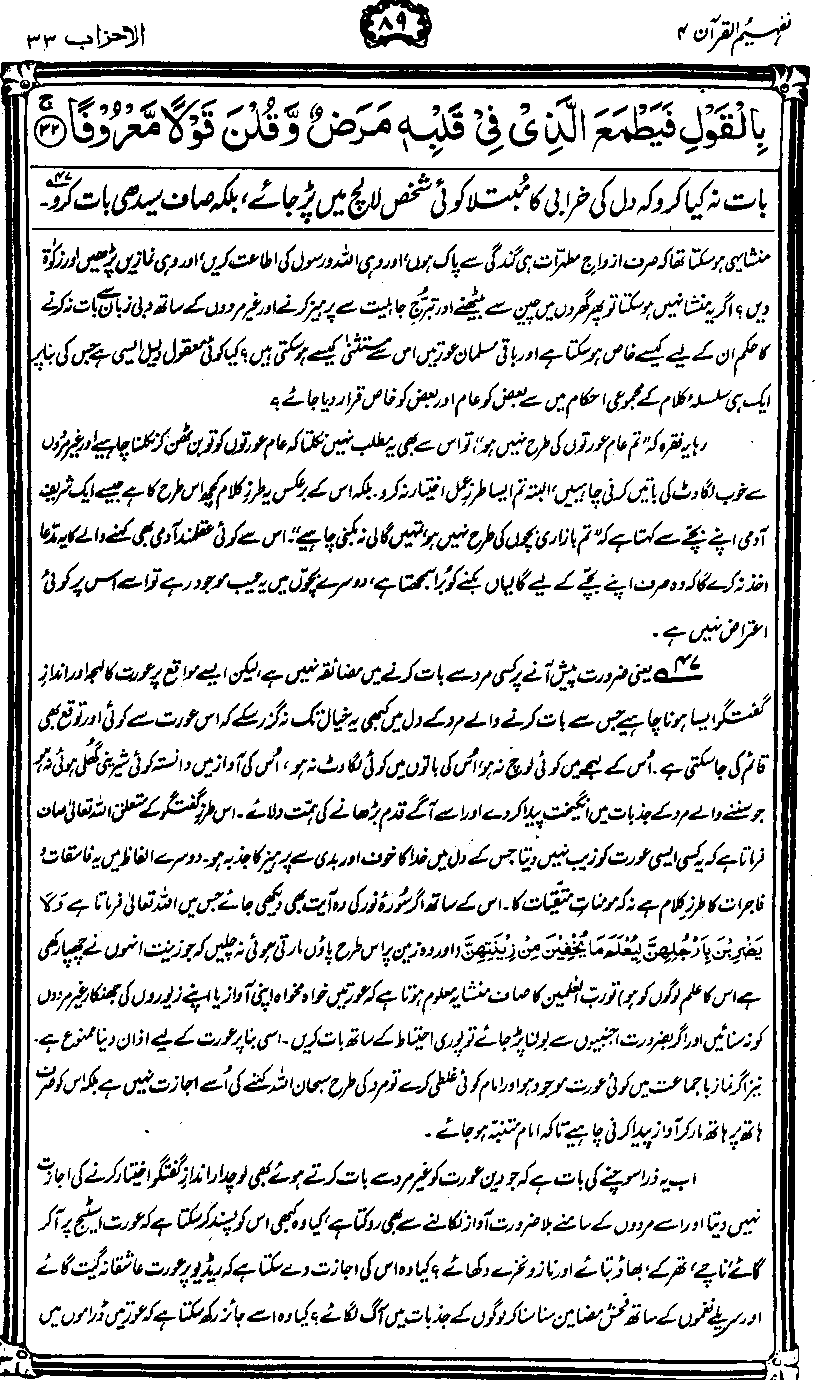 تفہیم القرآن ۴
۸۹
الاحزاب ۳۳
بِالْقَوْلِ فَيَطْمَعَ الَّذِىْ فِىْ قَلْبِهٖ مَرَضٌ وَّقُلْنَ قَوْلًا مَّعْرُوْفًا ۚ ۳۲
بات نہ کیا کرو کہ دل کی خرابی کا مُبتلا کوئی شخص لالچ میں پڑ جائے، بلکہ صاف سیدھی بات کرو۔ ۴۷
منشا یہی ہو سکتا تھا کہ صرف ازواجِ مطہرات ہی گندگی سے پاک ہوں، اور وہی اللہ و رسول کی اطاعت کریں، اور وہی نمازیں پڑھیں اور زکوٰۃ
دیں؟ اگر یہ منشا نہیں ہو سکتا تو پھر گھروں میں چین سے بیٹھنے اور تبرُّجِ جاہلیت سے پرہیز کرنے اور غیر مردوں کے ساتھ دبی زبان سے بات نہ کرنے
کا حکم ان کے لیے کیسے خاص ہو سکتا ہے اور باقی مسلمان عورتیں اس سے مستثنیٰ کیسے ہو سکتی ہیں؟ کیا کوئی معقول دلیل ایسی ہے جس کی بنا پر
ایک ہی سلسلۂ کلام کے مجموعی احکام میں سے بعض کو عام اور بعض کو خاص قرار دیا جائے؟
رہا یہ فقرہ کہ ”تم عام عورتوں کی طرح نہیں ہو“، تو اس سے بھی یہ مطلب نہیں نکلتا کہ عام عورتوں کو تو بن ٹھن کر نکلنا چاہیے اور غیر مردوں
سے خوب لگاوٹ کی باتیں کرنی چاہییں، البتہ تم ایسا طرزِ عمل اختیار نہ کرو۔ بلکہ اس کے برعکس یہ طرزِ کلام کچھ اس طرح کا ہے جیسے ایک شریف
آدمی اپنے بچّے سے کہتا ہے کہ ”تم بازاری بچوں کی طرح نہیں ہو، تمہیں گالی نہ بکنی چاہیے“۔ اس سے کوئی عقلمند آدمی بھی کہنے والے کا یہ مدّعا
اخذ نہ کرے گا کہ وہ صرف اپنے بچّے کے لیے گالیاں بکنے کو بُرا سمجھتا ہے، دوسرے بچوں میں یہ عیب موجود رہے تو اسے اس پر کوئی
اعتراض نہیں ہے۔
۴۷ یعنی ضرورت پیش آنے پر کسی مرد سے بات کرنے میں مضائقہ نہیں ہے لیکن ایسے مواقع پر عورت کا لہجہ اور اندازِ
گفتگو ایسا ہونا چاہیے جس سے بات کرنے والے مرد کے دل میں کبھی یہ خیال تک نہ گزر سکے کہ اس عورت سے کوئی اور توقع بھی
قائم کی جا سکتی ہے۔ اُس کے لہجے میں کوئی لوچ نہ ہو، اُس کی باتوں میں کوئی لگاوٹ نہ ہو، اُس کی آواز میں دانستہ کوئی شیرینی گھلی ہوئی نہ ہو
جو سننے والے مرد کے جذبات میں انگیخت پیدا کر دے اور اسے آگے قدم بڑھانے کی ہمت دلائے۔ اس طرزِ گفتگو کے متعلق اللہ تعالیٰ صاف
فرماتا ہے کہ یہ کسی ایسی عورت کو زیب نہیں دیتا جس کے دل میں خدا کا خوف اور بدی سے پرہیز کا جذبہ ہو۔ دوسرے الفاظ میں یہ فاسقات و
فاجرات کا طرزِ کلام ہے نہ کہ مومناتِ متقیات کا۔ اس کے ساتھ اگر سُورۂ نور کی وہ آیت بھی دیکھی جائے جس میں اللہ تعالیٰ فرماتا ہے وَلَا
يَضْرِبْنَ بِاَرْجُلِهِنَّ لِيُعْلَمَ مَا يُخْفِيْنَ مِنْ زِيْنَتِهِنَّ (اور وہ زمین پر اس طرح پاؤں مارتی ہوئی نہ چلیں کہ جو زینت انہوں نے چھپا رکھی
ہے اس کا علم لوگوں کو ہو) تو ربّ العٰلمین کا صاف منشا یہ معلوم ہوتا ہے کہ عورتیں خواہ مخواہ اپنی آواز یا اپنے زیوروں کی جھنکار غیر مردوں
کو نہ سنائیں اور اگر بضرورت اجنبیوں سے بولنا پڑ جائے تو پوری احتیاط کے ساتھ بات کریں۔ اسی بنا پر عورت کے لیے اذان دینا ممنوع ہے۔
نیز اگر نماز باجماعت میں کوئی عورت موجود ہو اور امام کوئی غلطی کرے تو مرد کی طرح سبحان اللہ کہنے کی اُسے اجازت نہیں ہے بلکہ اس کو صرف
ہاتھ پر ہاتھ مار کر آواز پیدا کرنی چاہیے تاکہ امام متنبّہ ہو جائے۔
اب یہ ذرا سوچنے کی بات ہے کہ جو دین عورت کو غیر مرد سے بات کرتے ہوئے بھی لوچدار اندازِ گفتگو اختیار کرنے کی اجازت
نہیں دیتا اور اسے مردوں کے سامنے بلا ضرورت آواز نکالنے سے بھی روکتا ہے، کیا وہ کبھی اس کو پسند کر سکتا ہے کہ عورت اسٹیج پر آ کر
گائے، ناچے، تھرکے، بھاؤ بتائے اور ناز و نخرے دکھائے؟ کیا وہ اس کی اجازت دے سکتا ہے کہ ریڈیو پر عورت عاشقانہ گیت گائے
اور سریلے نغموں کے ساتھ فحش مضامین سنا سنا کر لوگوں کے جذبات میں آگ لگائے؟ کیا وہ اسے جائز رکھ سکتا ہے کہ عورتیں ڈراموں میں